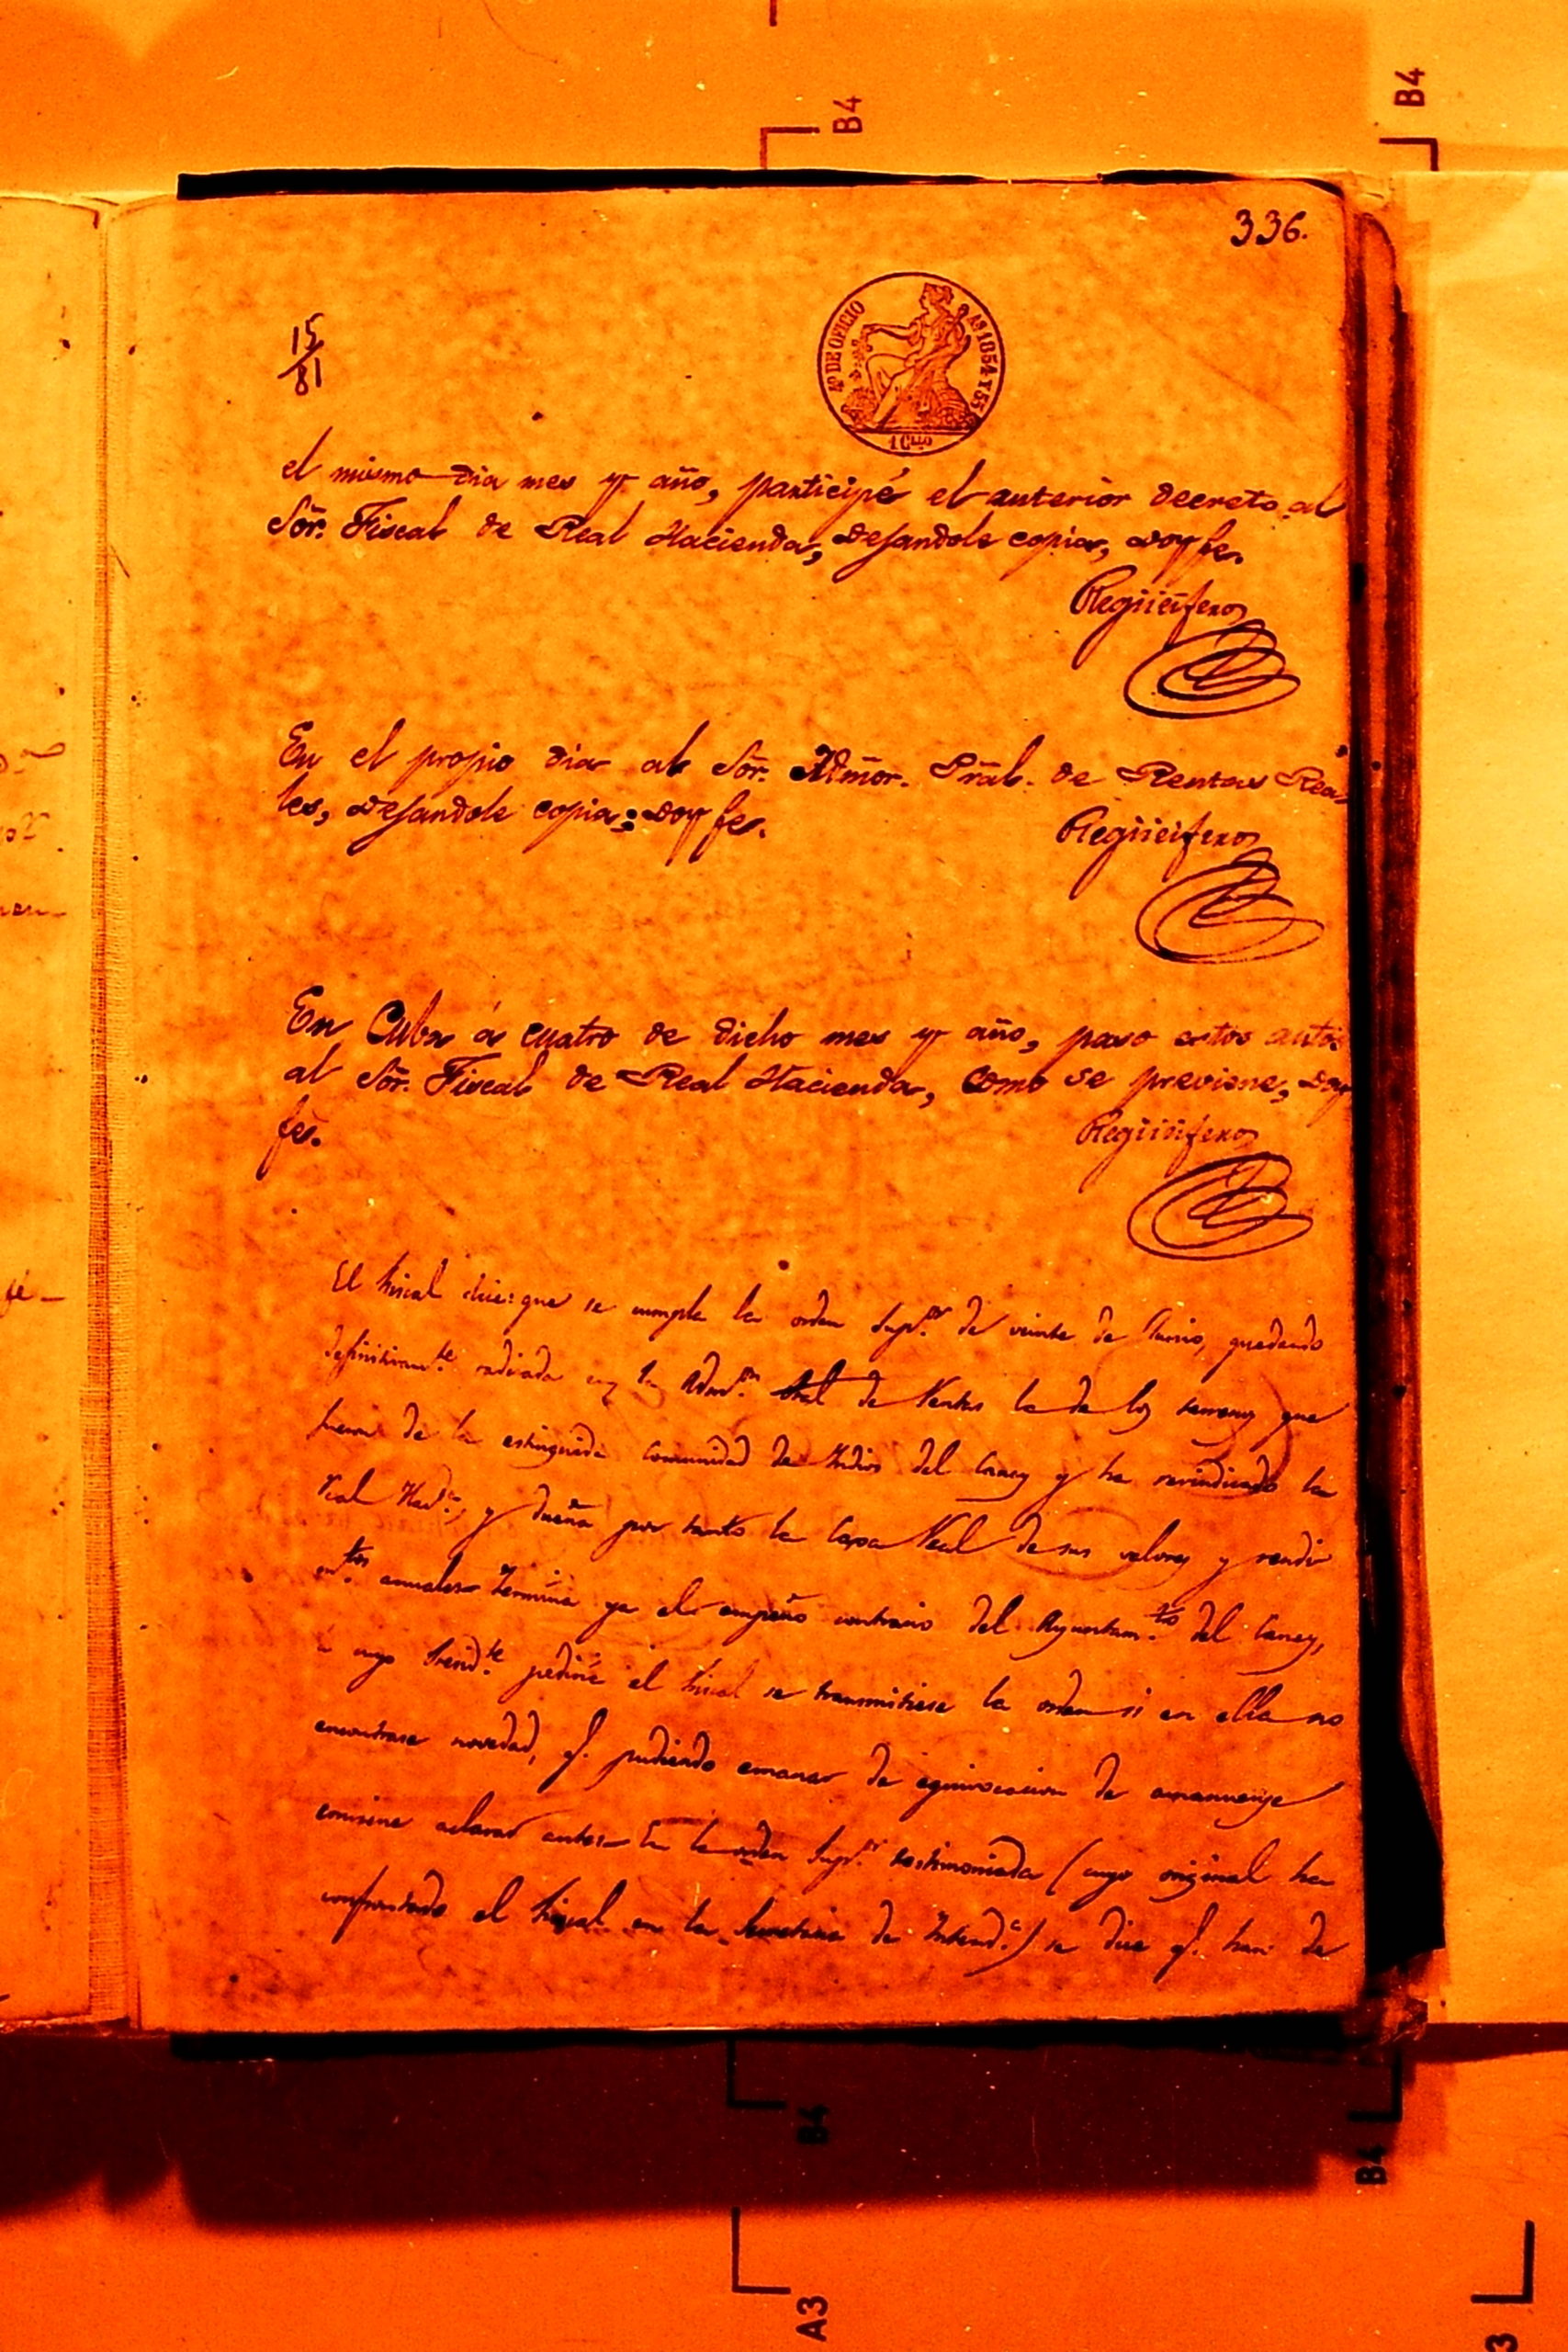 B4
B4
336.
15
81
4º DE OFICIO
AS 1854 Y 55
1 Cllo
el mismo dia mes y año, participé el anterior decreto al
Sõr. Fiscal de Real Hacienda, dejandole copia, doy fe.
Regüeifero
En el propio dia al Sõr. Admõr. Prãl. de Rentas Rea-
les, dejandole copia; doy fe.
Regüeifero
En Cuba á cuatro de dicho mes y año, paso estos autos
al Sõr. Fiscal de Real Hacienda, como se previene, doy
fe.
Regüeifero
El fiscal dice: que se cumpla la orden Supr. de veinte de Junio, quedando
definitivamte. radicada en la Admon. de Rentas la de los terrenos que
fueron de la estinguida comunidad de Indios del Caney y ha revindicado la
Real Hacda., y dueña por tanto la Caja Real de sus valores y rendi
mtos. anuales. Termina ya el empeño contrario del Ayuntamto. del Caney,
á cuyo Presidte. pediria el fiscal se transmitiese la orden si en ella no
encontrase novedad, q. pudiendo emanar de equivocacion de amanuense
conviene aclarar antes. En la orden Supr. testimoniada (cuyo original ha
confrontado el fiscal en la Secretaria de Intenda.) se dice q. han de
B4
B4
A3
3